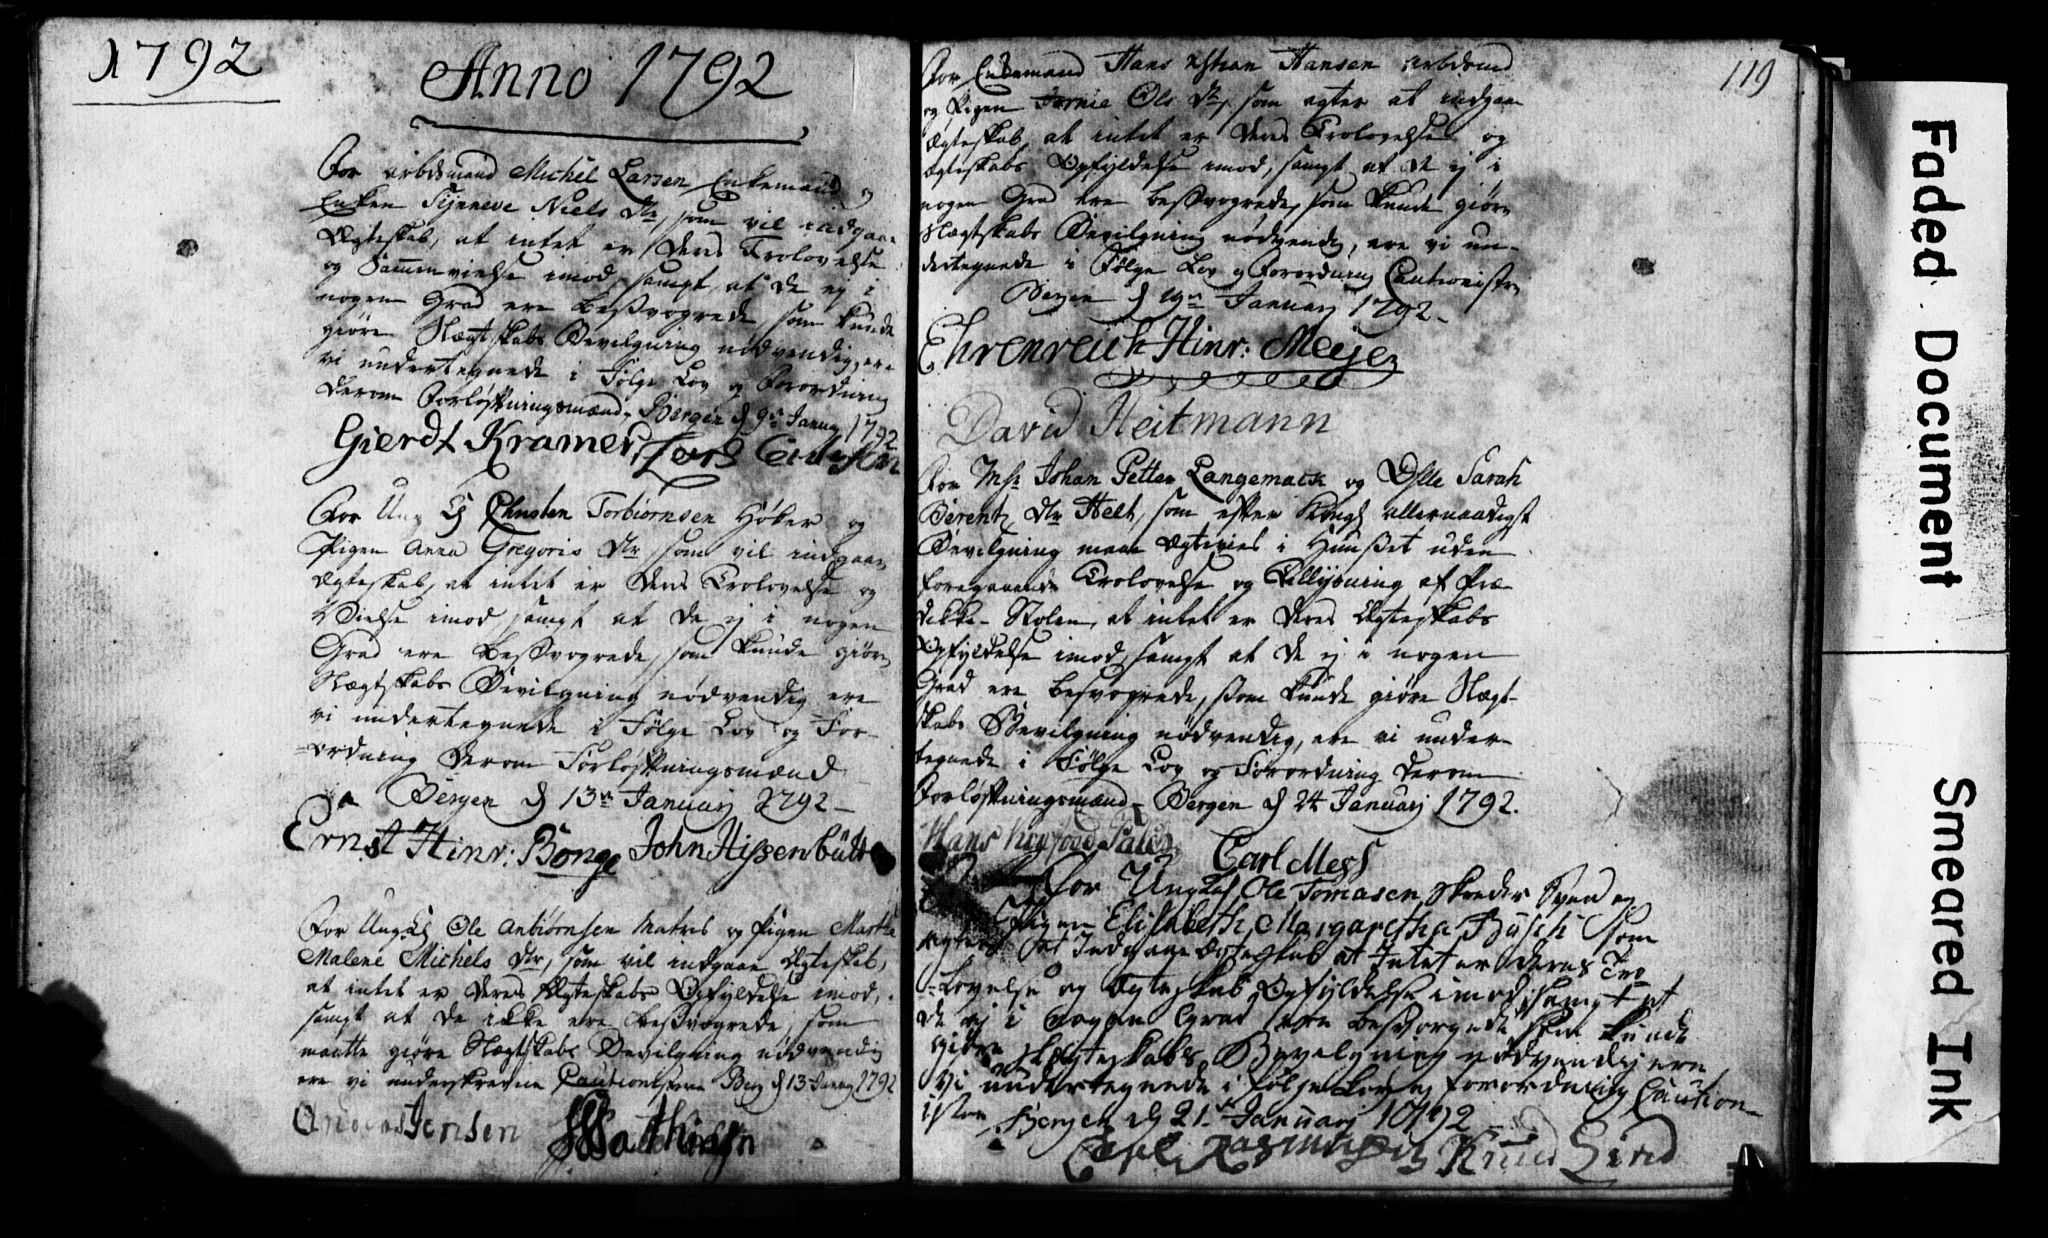 1792
Anno 1792
For arbdsmand Michel Larsen Enkemand og
Enken Synneve Niels Dtr, som vil indgaae
Ægteskab, at intet er Deres Trolovelse
og Sammenvielse imod, sampt at de ej i
nogen Grad ere besvogrede, som kunde
giøre Slægtskabs Bevilgning nødvendig, ere
vi undertegnede i Følge Lov og Forordning
derom Forløftningsmænd. Bergen d 9de Januarj 1792
Gierdt Kramer, Lars
For Ung K Christen Torbiørnsen Høker og
Pigen Anna Gregoris Dtr, som vil indgaae
Ægteskab, at intet er Deres Trolovelse og
Vielse imod, sampt at de ej i nogen
Grad ere besvogrede, som kunde giøre
Slægtskabs Bevilgning nødvendig ere
vi undertegnede i Følge Lov og For-
ordning derom Forløftningsmænd
Bergen d 13de Januarj 1792 -
Ernst Hinr: Bonge John Hissenbütt
For Ung K Ole Anbiørnsen Matros og Pigen Marthe
Malene Michels Dtr, som vil indgaae Ægteskab,
at intet er Deres Ægteskabs Opfyldelse imod,
sampt at de ikke ere besvogrede, som
maatte giøre Slægtskabs Bevilgning nødvendig
ere vi underskrevne Cautionister Berg d 13 Janry 1792
Anders Jensen Mathiesen
119
For Enkemand Hans Hansen arbdsmd
og Pigen Ols Dtr, som agter at indgaae
Ægteskab, at intet er Deres Trolovelse og
Ægteskabs Opfyldelse imod, sampt at de ej i
nogen Grad ere besvogrede, som kunde giøre
Slægtskabs Bevilgning nødvendig, ere vi un-
dertegnede i Følge Lov og Forordning Cautionister
Bergen d 19de Januarj 1792 -
Ehrenreich Hinr: Meyer
David Heitmann
For Msr Johan Petter Langemack og Dslle Sarah
Berentz Dtr Helt, som efter Kongl allernaadigst
Bevilgning maae Ægtevies i Huuset uden
foregaaende Trolovelse og Tillysning af Præ-
dike-Stolen, at intet er Deres Ægteskabs
Opfyldelse imod, sampt at de ej i nogen
Grad ere besvogrede, som kunde giøre Slægt-
skabs Bevilgning nødvendig, ere vi under-
tegnede i Følge Lov og Forordning derom
Forløftningsmænd - Bergen d 24 Januarj 1792.
Hans Carl Mess
For Ung Ole Tomasen, Skreder Svend og
Pigen Elisabeth Margaretha Busch som
agter at Indgaae Ægteskab at Intet er deres Tro
-Lovelse og Ægteskabs Opfyldelse imod, sampt at
de ej i nogen Grad ere besvogrede som kunde
giøre Slegteskabs Bevelgning nødvendig ere
vi undertegnede i følge Lov og forordning Caution-
ister Bergen d 21de Januarj 1792
Carl Rasmussen Knud Lind
Faded Document
Smeared Ink